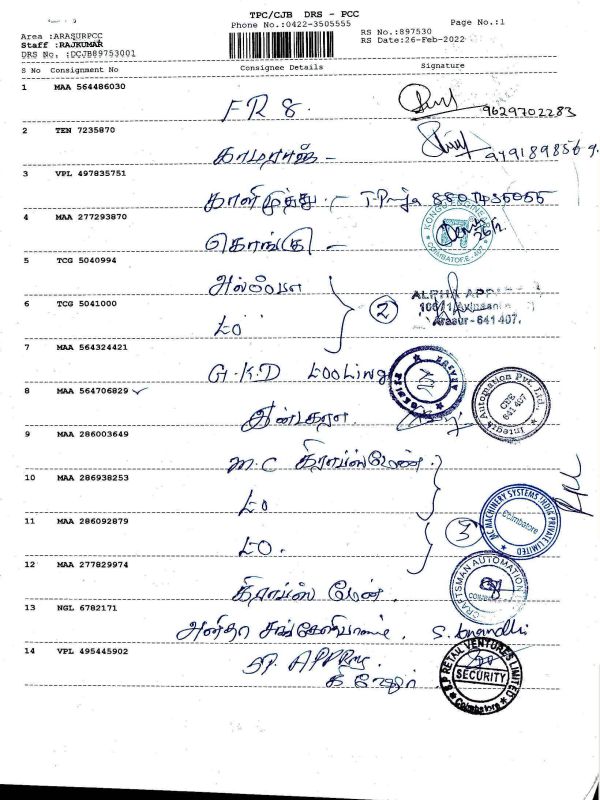 TPC/CJB DRS - PCC
Phone No.:0422-3505555 Page No.:1
Area :ARASURPCC RS No.:897530
Staff :RAJKUMAR RS Date:26-Feb-2022
DRS No. :DCJB89753001
S No Consignment No Consignee Details Signature
1 MAA 564486030
FR 8. 9629702283
2 TEN 7235870
காமராஜ் -
3 VPL 497835751
காளிமுத்து :-
4 MAA 277293870
KONGU ENGINEE
COIMBATORE - 407
கொங்கு -
26/2
5 TCG 5040994
6 TCG 5041000
2
ALPHA APPA
Arasur - 641 407.
7 MAA 564324421
G.K.D Tooling
8 MAA 564706829
Integra Automation Pvt. Ltd.,
CBE
641 407
9 MAA 286003649
M.C
10 MAA 286938253
MC MACHINERY SYSTEMS INDIA PRIVATE LIMITED
Coimbatore
11 MAA 286092879
3
12 MAA 277829974
CRAFTSMAN AUTOMATION
13 NGL 6782171
அனிதா S. Anandhi
14 VPL 495445902
S.P RETAIL VENTURES LIMITED
SECURITY
Coimbatore